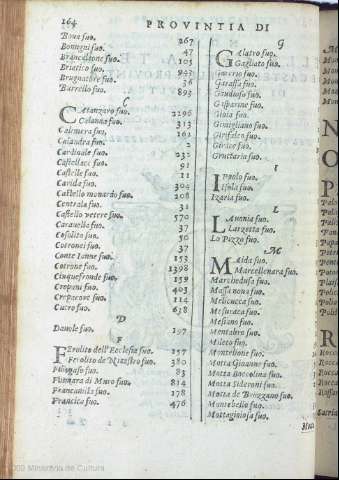 164 PROVINTIA DI
Boue fuo. 267
Bonigni fuo. 47
Brancalione fuo. 103
Briatico fuo. 943
Brugnatore fuo. 36
Barrello fuo. 893
C
CAtanzaro fuo. 2296
Colanna fuo. 313
Calimera fuo. 161
Calandra fuo. 2
Cardinale fuo. 232
Castellace fuo. 91
Castelle fuo. 11
Carida fuo. 304
Castello monardo fuo. 208
Centrala fuo. 31
Castello vetere fuo. 570
Carauello fuo. 37
Cosolito fuo. 50
Cotronei fuo. 37
Conte Ianne fuo. 153
Cotrone fuo. 1398
Cinquefronde fuo. 159
Cropani fuo. 403
Crepacove fuo. 114
Cutro fuo. 638
D
Dauole fuo. 197
F
FErolito dell'Ecclesia fuo. 157
Feriolito de Niastro fuo. 380
Filogaso fuo. 83
Fiumara di Muro fuo. 814
Francauilla fuo. 178
Francica fuo. 476
G
GAlatro fuo.
Gagliato fuo.
Guerio fuo.
Garaffa fuo.
Gaudioso fuo.
Gasparine fuo.
Gioia fuo.
Gimigliano fuo.
Girifalco fuo.
Girace fuo.
Gruttaria fuo.
I
IOpolo fuo.
Isola fuo.
Izaria fuo.
L
LAuonia fuo.
Largotta fuo.
Lo Pizzo fuo.
M
MAida fuo.
Marcellenara fuo.
Martinedusa fuo.
Massanoua fuo.
Melicucca fuo.
Mesuraca fuo.
Mesiano fuo.
Montaleto fuo.
Mileto fuo.
Monteleone fuo.
Motta Giouanne fuo.
Motta Boccolina fuo.
Motta Sideroni fuo.
Motta de Bouggano fuo.
Montebello fuo.
Mottaginiosa fuo.
Ministerio de Cultura